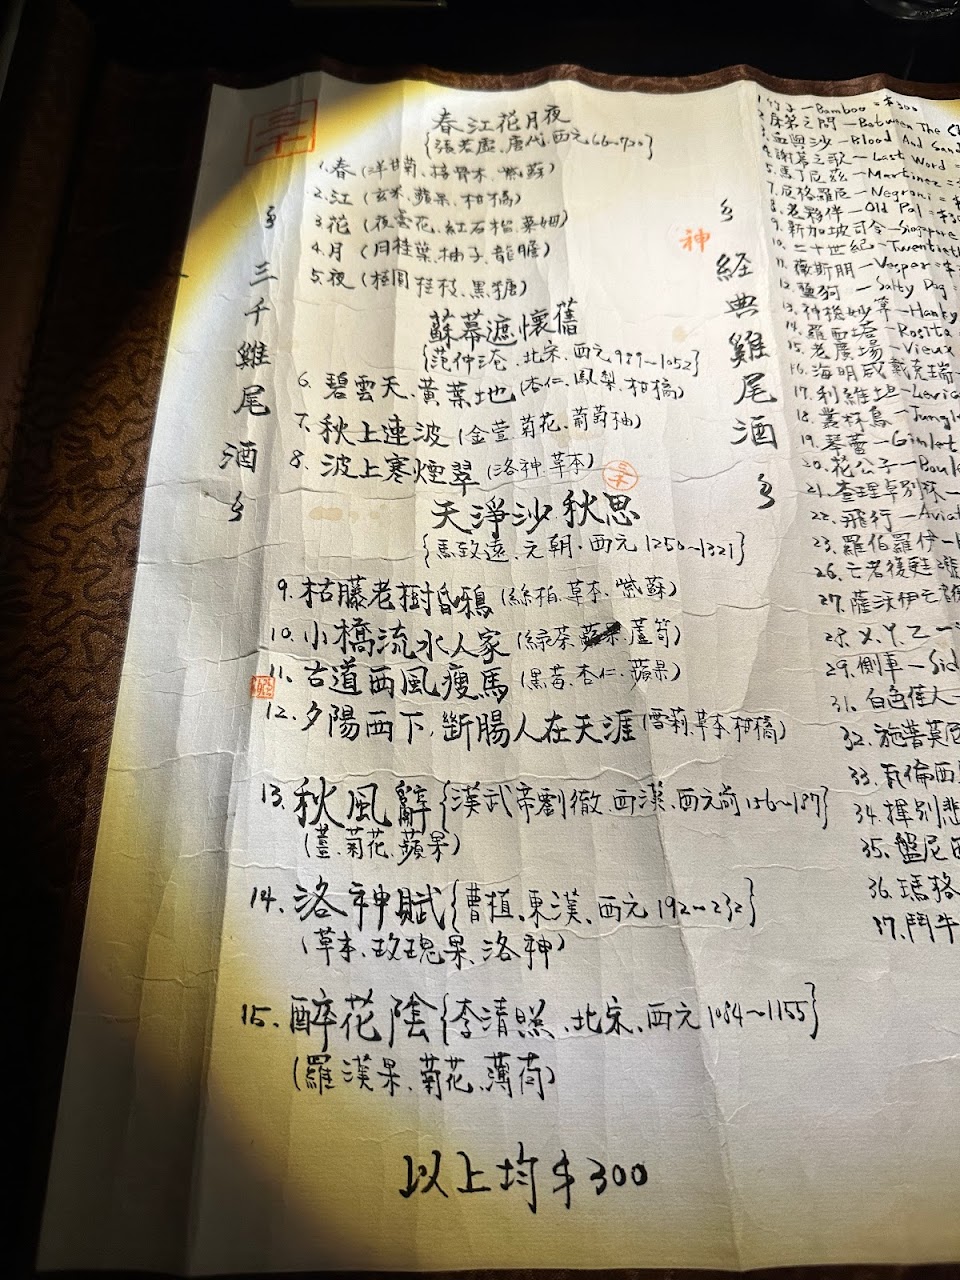 三千
春江花月夜
{張若虛、唐代、西元660~720}
1.春(洋甘菊、接骨木、紫蘇)
2.江(玄米、蘋果、柑橘)
3.花(夜雲花、紅石榴、葉姗)
4.月(月桂葉、柚子、龍膽)
5.夜(桂圓、桂枝、黑糖)
三千雞尾酒
蘇幕遮懷舊
{范仲淹、北宋、西元989~1052}
6.碧雲天、黃葉地(杏仁、鳳梨、柑橘)
7.秋上連波(金萱、菊花、葡萄柚)
8.波上寒煙翠(洛神、草本)
天淨沙 秋思
{馬致遠、元朝、西元1250~1321}
9.枯藤老樹昏鴉(絲柏、草本、紫蘇)
10.小橋流水人家(綠茶、蘋果、蘆筍)
11.古道西風瘦馬(黑莓、杏仁、蘋果)
12.夕陽西下,斷腸人在天涯(雪莉、草本、柑橘)
13.秋風辭{漢武帝劉徹、西漢、西元前156~187}
(薑、菊花、蘋果)
14.洛神賦{曹植、東漢、西元192~232}
(草本、玫瑰果、洛神)
15.醉花陰{李清照、北宋、西元1084~1155}
(羅漢果、菊花、薄荷)
以上均$300
神
經典雞尾酒
1.竹子—Bamboo=$300
2.床笫之間—Between The
3.血與沙—Blood And Sand
謝幕之歌—Last Word=
馬丁尼茲—Martinez=
7.尼格羅尼—Negroni=
8.老夥伴—Old Pal=
9.新加坡司令—Singapore
10.二十世紀—Twentieth
11.薇斯朋—Vesper=
12.鹽狗—Salty Dog=
13.神機妙算—Hanky
14.羅西塔—Rosita
15.老廣場—Vieux
16.海明威戴克瑞
17.利維坦—Levia
18.叢林鳥—Jungle
19.琴蕾—Gimlet
20.花公子—Boul
21.查理卓別林
22.飛行—Aviat
23.羅伯羅伊
26.亡者復甦2號
27.薩沃伊
28.X.Y.Z
29.側車—Sid
31.白色佳人
32.施普莫尼
33.瓦倫西
34.揮別悲
35.盤尼西
36.瑪格
37.鬥牛